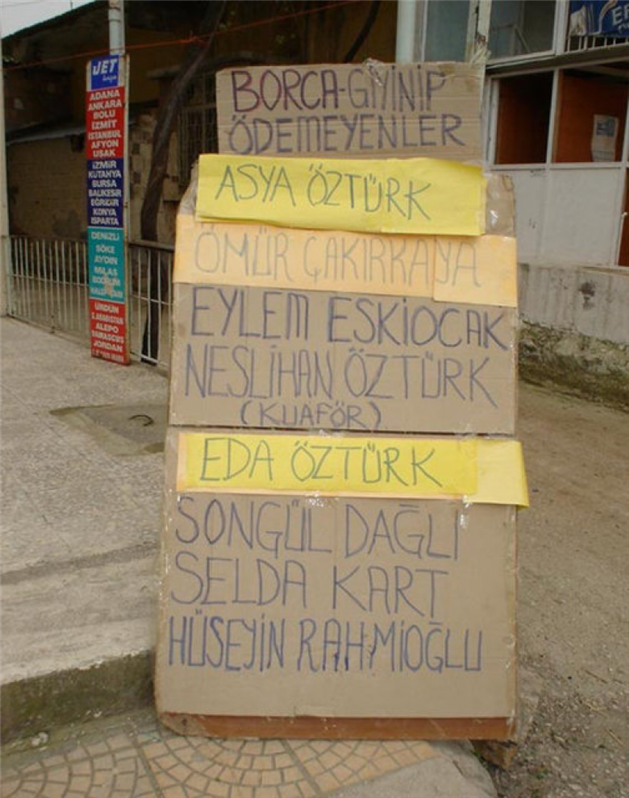 BORCA-GİYİNİP
ÖDEMEYENLER
ASYA ÖZTÜRK
ÖMÜR ÇAKIRKAYA
EYLEM ESKİOCAK
NESLİHAN ÖZTÜRK
(KUAFÖR)
EDA ÖZTÜRK
SONGÜL DAĞLI
SELDA KART
HÜSEYİN RAHMİOĞLU
JET
ADANA
ANKARA
BOLU
İZMİT
İSTANBUL
AFYON
UŞAK
İZMİR
KÜTAHYA
BURSA
BALIKESİR
EĞİRDİR
KONYA
ISPARTA
DENİZLİ
SÖKE
AYDIN
MİLAS
BODRUM
ÜRDÜN
S.ARABİSTAN
ALEPO
DAMASCUS
JORDAN